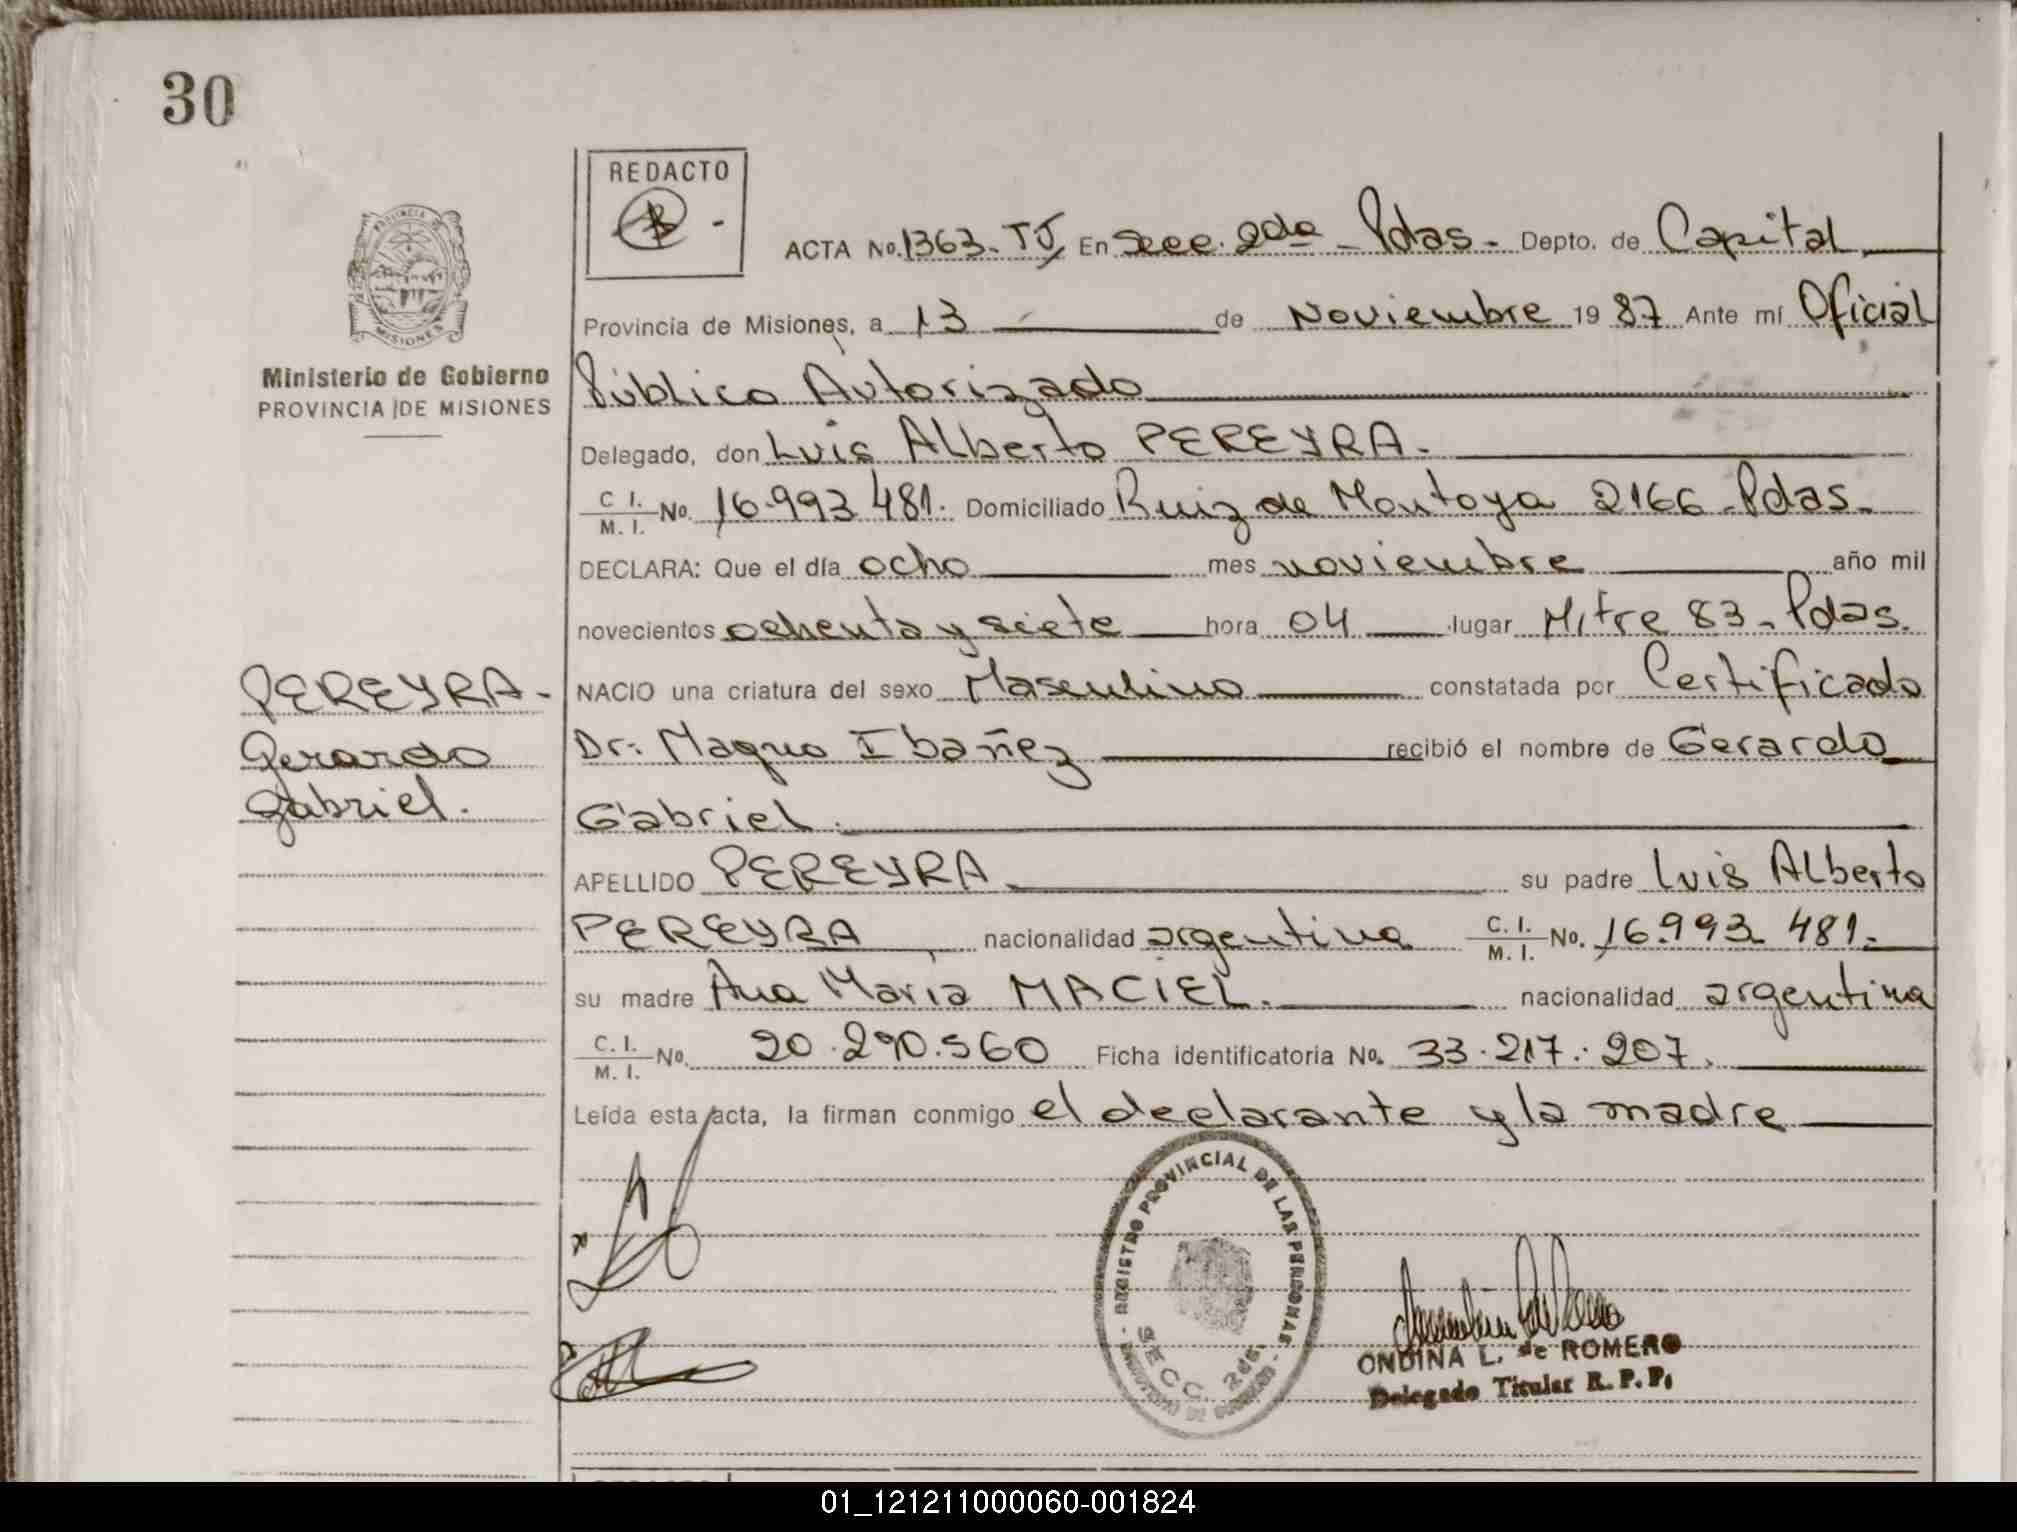 30
REDACTO
ACTA No. 1363-TJ En Secc. 2da - Pdas. Depto. de Capital
PROVINCIA DE MISIONES
Provincia de Misiones, a 13 de Noviembre 1987 Ante mí Oficial
Ministerio de Gobierno
PROVINCIA DE MISIONES
Público Autorizado
Delegado, don Luis Alberto PEREYRA.
C I. M. I. No. 16.993 481. Domiciliado Ruiz de Montoya 2166 - Pdas.
DECLARA: Que el día ocho mes noviembre año mil
novecientos ochenta y siete hora 04 lugar Mitre 83 - Pdas.
NACIO una criatura del sexo Masculino constatada por Certificado
Dr: Magno Ibañez recibió el nombre de Gerardo
Gabriel.
PEREYRA -
Gerardo
Gabriel.
APELLIDO PEREYRA su padre Luis Alberto
PEREYRA nacionalidad argentina C. I. M. I. No. 16.993 481.
su madre Ana María MACIEL. nacionalidad argentina
C. I. M. I. No. 20.290.560 Ficha identificatoria No. 33.217.207.
Leída esta acta, la firman conmigo el declarante y la madre
REGISTRO PROVINCIAL DE LAS PERSONAS
SECC. 2da.
ONDINA L. de ROMERO
Delegado Titular R. P. P.
01_121211000060-001824